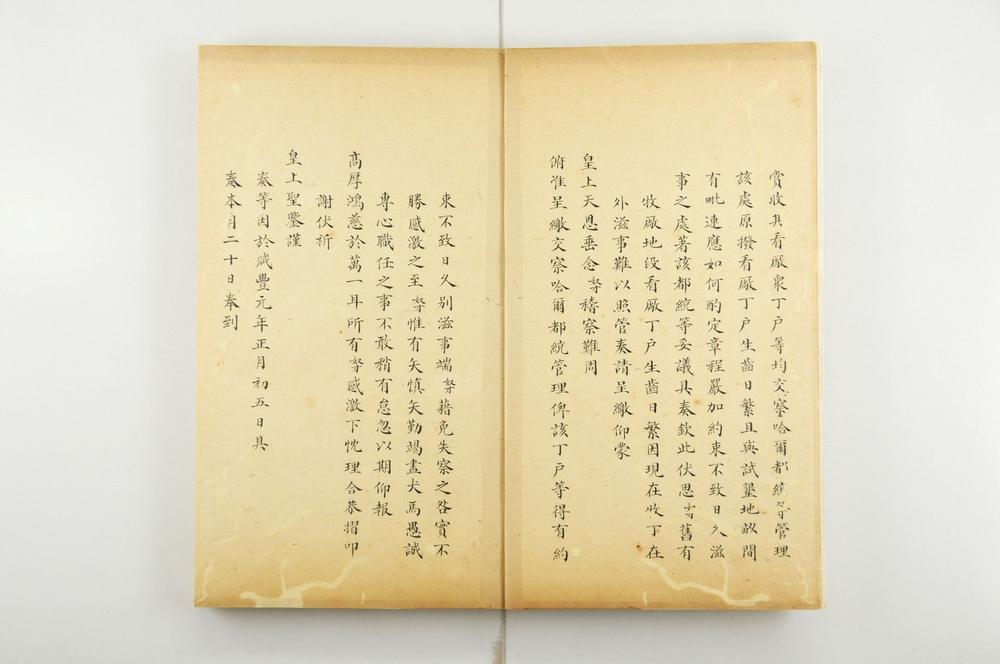 賞收其看厰衆丁戶等均交察哈爾都統等管理
該處原撥看厰丁戶生齒日繁且與試墾地畝間
有毗連應如何酌定章程嚴加約束不致日久滋
事之處著該都統等妥議具奏欽此伏思舊有
牧厰地段看厰丁戶生齒日繁因現在牧丁在
外滋事難以照管奏請呈繳仰蒙
皇上天恩垂念奴才稽察難周
俯准呈繳交察哈爾都統管理俾該丁戶等得有約
束不致日久別滋事端奴才藉免失察之咎實不
勝感激之至奴才惟有矢慎矢勤竭盡犬馬愚誠
專心職任之事不敢稍有怠忽以期仰報
高厚鴻慈於萬一耳所有奴才感激下忱理合恭摺叩
謝伏祈
皇上聖鑒謹
奏等因於咸豐元年正月初五日具
奏本月二十日奉到